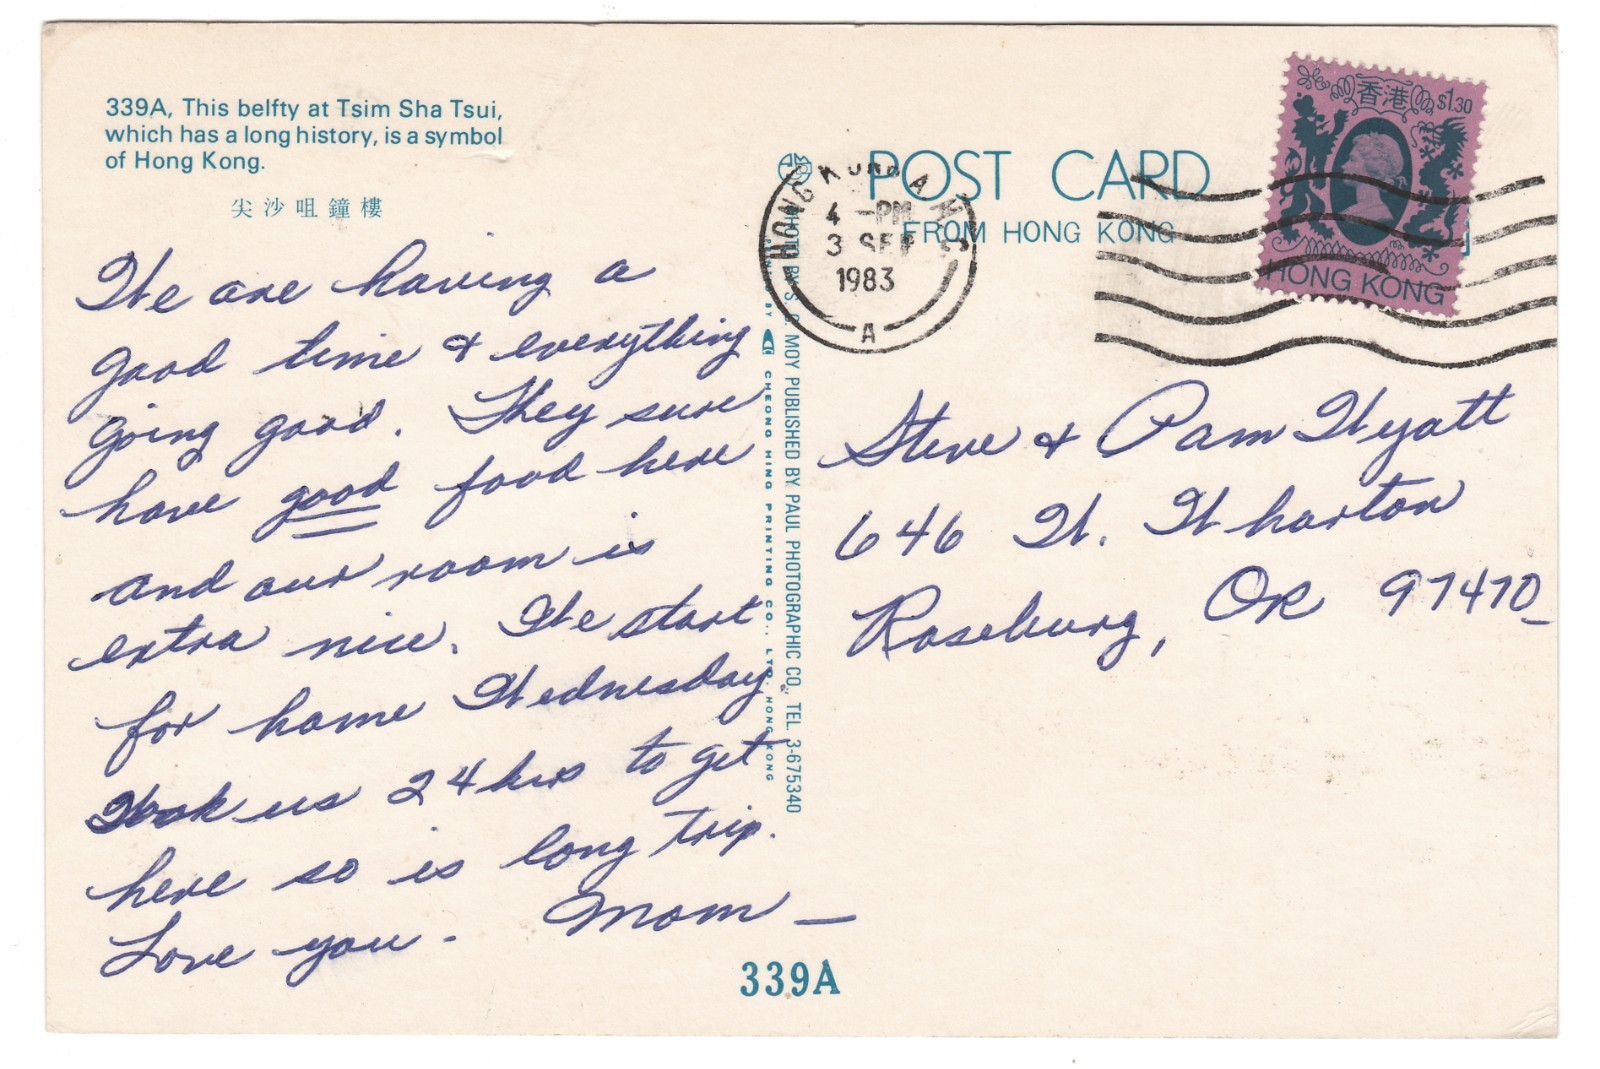 339A, This belfty at Tsim Sha Tsui,
which has a long history, is a symbol
of Hong Kong.
尖沙咀鐘樓
We are having a
good time & everything
going good. They sure
have good food here
and our room is
extra nice. We start
for home Wednesday
Took us 24 hrs to get
here so is long trip.
Love you - Mom —
PHOTO BY S. C. MOY PUBLISHED BY PAUL PHOTOGRAPHIC CO., TEL. 3-675340
BY CHEONG HING PRINTING CO., LTD. HONG KONG
339A
POST CARD
FROM HONG KONG
HONG KONG
4 -PM
3 SEP
1983
A
香港 $1.30
HONG KONG
Steve & Pam Wyatt
646 W. Wharton
Roseburg, OR 97470